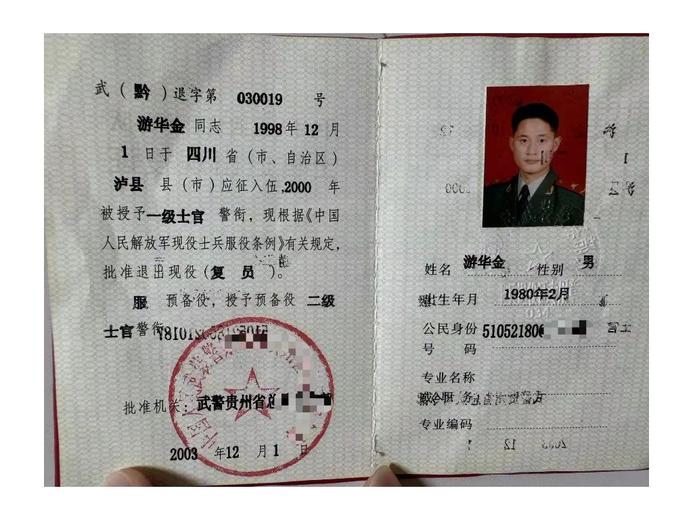 武（黔）退字第 030019 号
游华金 同志 1998 年 12 月
1 日于 四川 省（市、自治区）
泸县 县（市）应征入伍，2000 年
被授予 一级士官 警衔，现根据《中国
人民解放军现役士兵服役条例》有关规定，
批准退出现役（复 员）。
服 预备役，授予预备役 二级
士官 警衔
批准机关：武警贵州省总
2003 年 12 月 1 日
姓名 游华金 性别 男
出生年月 1980年2月
公民身份 510521800
号 码
专业名称
或公职务
专业编码